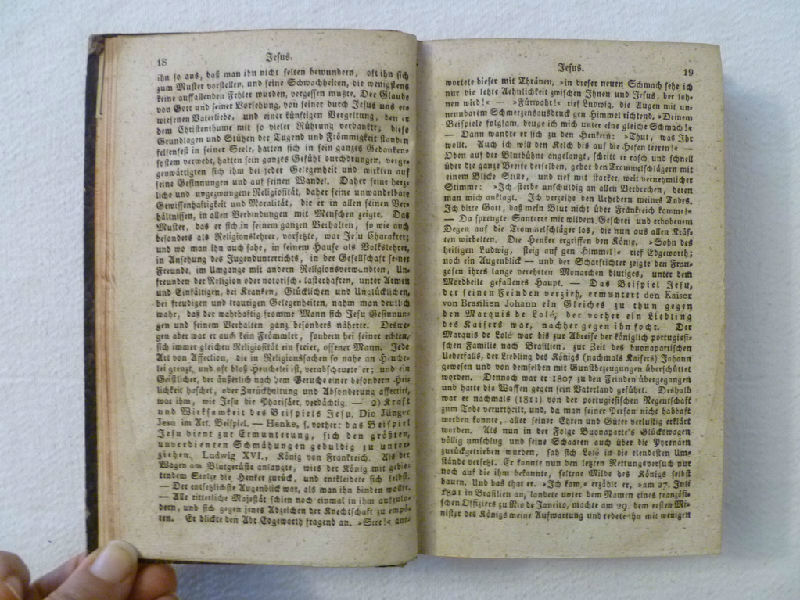 18
Jesus.
ihn so aus, daß man ihn nicht selten bewundern, oft ihn sich
zum Muster vorstellen, und seine Schwachheiten, die wenigstens
keine auffallenden Fehler wurden, vergessen mußte. Der Glaube
von Gott und seiner Vorsehung, von seiner durch Jesus uns er-
wiesenen Vaterliebe, und einer künftigen Vergeltung, den er
dem Christenthume mit so vieler Rührung verdankte; diese
Grundlagen und Stützen der Tugend und Frömmigkeit standen
felsenfest in seiner Seele, hatten sich in sein ganzes Gedanken-
system verwebt, hatten sein ganzes Gefühl durchdrungen, verge-
genwärtigten sich ihm bei jeder Gelegenheit und wirkten auf
seine Gesinnungen und auf seinen Wandel. Daher seine herz-
liche und ungezwungene Religiosität, daher seine unwandelbare
Gewissenhaftigkeit und Moralität, die er in allen seinen Ver-
hältnissen, in allen Verbindungen mit Menschen zeigte. Das
Muster, das er sich in seinem ganzen Verhalten, so wie auch
besonders als Religionslehrer, vorsetzte, war Jesu Charakter;
und wo man ihn auch sahe, in seinem Hause als Volkslehrer,
in Ansehung des Jugendunterrichts, in der Gesellschaft seiner
Freunde, im Umgange mit andern Religionsverwandten, Un-
freunden der Religion oder notorisch-lasterhaften, unter Armen
und Einfältigen, bei Kranken, Glücklichen und Unglücklichen,
bei freudigen und traurigen Gelegenheiten, nahm man deutlich
wahr, daß der wahrhaftig fromme Mann sich Jesu Gesinnun-
gen und seinem Verhalten ganz besonders näherte. Deswe-
gen aber war er auch kein Frömmler, sondern bei seiner
sich immer gleichen Religiosität ein freier, offener Mann. Jede
Art von Affection, die in Religionssachen so nahe an Heuche-
lei grenzt, und oft bloß Heuchelei ist, verabscheuete er; und ein
Geistlicher, der äußerlich nach dem Geruche einer besondern Hei-
ligkeit haschet, oder Zurückhaltung und Absonderung affectirt,
war ihm, wie Jesu die Pharisäer, verdächtig. — 2) Kraft
und Wirksamkeit des Beispiels Jesu. Die Jünger
Jesu im Art. Beispiel. — Henke, s. vorher: das Beispiel
Jesu dient zur Ermunterung, sich den größten,
unverdienten Schmähungen geduldig zu unter-
ziehen. Ludwig XVI., König von Frankreich. Als der
Wagen am Blutgerüste anlangte, wies der König mit gebie-
tendem Stolze die Henker zurück, und entkleidete sich selbst.
— Der entsetzlichste Augenblick war, als man ihn binden wollte.
— Alle ritterliche Majestät schien noch einmal in ihm aufzulo-
dern, und sich gegen jenes Abzeichen der Knechtschaft zu empö-
ren. Er blickte den Abt Edgeworth fragend an. »Sire!« ant-
Jesus.
19
wortete dieser mit Thränen, »in dieser neuen Schmach sehe ich
nur die letzte Aehnlichkeit zwischen Ihnen und Jesus, der
nen wird!« — »Fürwahr!« rief Ludwig, die Augen mit un-
nennbarem Schmerzensausdruck gen Himmel richtend, »Deinem
Beispiele folgsam, beuge ich mich unter eine gleiche Schmach!«
— Dann wandte er sich zu den Henkern: »Thut, was Ihr
wollt. Auch ich will den Kelch bis auf die Hefen leeren!« —
Oben auf der Blutbühne angelangt, schritt er rasch und schnell
über die ganze Breite derselben, gebot den Trommelschlägern mit
einem Blicke Stille, und rief mit starker, weit vernehmlicher
Stimme: »Ich sterbe unschuldig an allen Verbrechen, deren
man mich anklagt. Ich verzeihe den Urhebern meines Todes.
Ich bitte Gott, daß mein Blut nicht über Frankreich komme!«
— Da sprengte Santerre mit wildem Geschrei und erhobenem
Degen auf die Trommelschläger los, die nun aus allen Kräf-
ten wirbelten. Die Henker ergriffen den König. »Sohn des
heiligen Ludwig, steig auf gen Himmel!« rief Edgeworth;
noch ein Augenblick — und der Scharfrichter zeigte den Fran-
zosen ihres lange verehrten Monarchen blutiges, unter dem
Mordbeile gefallenes Haupt. — Das Beispiel Jesu,
der seinen Feinden verzieh, ermuntert den Kaiser
von Brasilien Johann ein Gleiches zu thun gegen
den Marquis de Loló, der vorher ein Liebling
des Kaisers war, nachher gegen ihn focht. Der
Marquis de Loló war bis zur Abreise der königlich portugiesi-
schen Familie nach Brasilien, zur Zeit des buonapartischen
Ueberfalls, der Liebling des Königs (nachmals Kaisers) Johann
gewesen und von demselben mit Gunstbezeugungen überschüttet
worden. Dennoch war er 1807 zu den Feinden übergegangen
und hatte die Waffen gegen sein Vaterland geführt. Deshalb
war er nachmals (1811) von der portugiesischen Regentschaft
zum Tode verurtheilt, und, da man seiner Person nicht habhaft
werden konnte, aller seiner Ehren und Güter verlustig erklärt
worden. Als nun in der Folge Buonaparte's Glückswagen
völlig umschlug und seine Schaaren auch über die Pyrenäen
zurückgetrieben wurden, sah sich Loló in die elendesten Um-
stände versetzt. Er konnte nun den letzten Rettungsversuch nur
noch auf die ihm bekannte, seltene Milde des Königs selbst
bauen. Und das that er. »Ich kam,« erzählte er, »am 27. Juli
in Brasilien an, landete unter dem Namen eines französi-
schen Offiziers zu Rio de Janeiro, machte am 29. dem ersten Mi-
nister des Königs meine Aufwartung und redete ihn mit wenigen